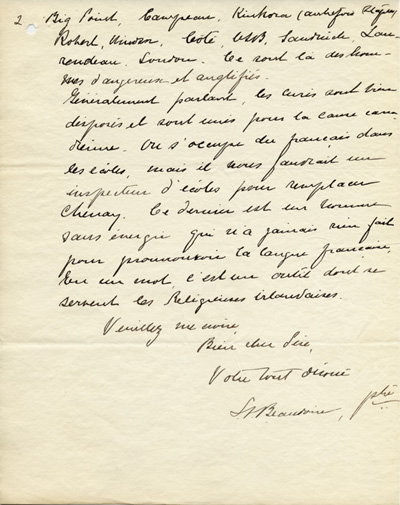 2 Big Point, Campeau, Kinkora (autrefois
Robert, Windsor, Côté, CSB, Sandwich, Lau-
rendeau, London. Ce sont là des hom-
mes dangereux et anglifiés.
Généralement parlant, les curés sont bien
disposés et sont unis pour la cause cana-
dienne. On s'occupe du français dans
les écoles, mais il nous faudrait un
inspecteur d'écoles pour remplacer
Chenay. Ce dernier est un homme
sans énergie qui n'a jamais rien fait
pour promouvoir la langue française.
En un mot, c'est un outil dont se
servent les Religieuses irlandaises.
Veuillez me croire,
Bien cher Père,
Votre tout dévoué
Beaudoin, ptre